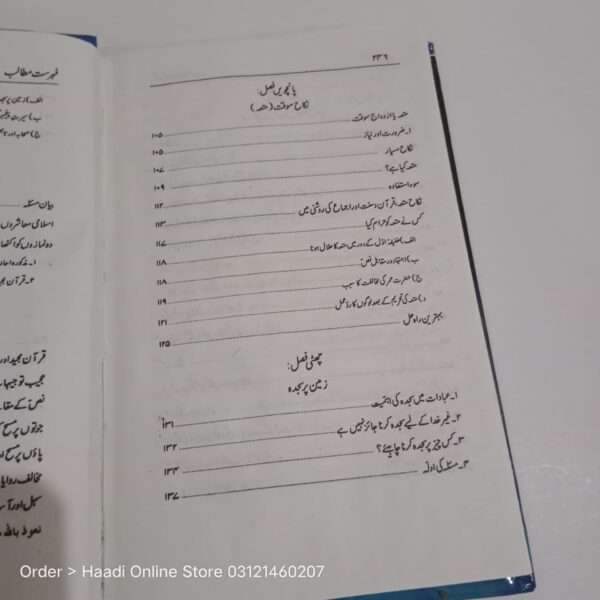 ۲۳۶
پانچویں فصل:
نکاح موقت (متعہ)
متعہ یا ازدواج موقت
۱۔ضرورت اور نیاز ۱۰۵
نکاح مسیار ۱۰۵
متعہ کیا ہے؟ ۱۰۷
سوء استفادہ ۱۰۹
نکاح متعہ، قرآن و سنت اور اجماع کی روشنی میں ۱۱۲
کس نے متعہ کو حرام کیا ۱۱۳
الف) خلیفۂ اوّل کے دور میں متعہ کا حلال ہونا ۱۱۷
ب) اجتہاد در مقابل نص: ۱۱۸
ج) حضرت عمر کی مخالفت کا سبب ۱۱۸
د) متعہ کی تحریم کے بعد لوگوں کا ردّ عمل ۱۱۹
بہترین راہ حل ۱۲۱
۱۲۵
چھٹی فصل:
زمین پر سجدہ
۱۔عبادات میں سجدہ کی اہمیت
۲۔غیر خدا کے لیے سجدہ کرنا جائز نہیں ہے ۱۳۱
۳۔کس چیز پر سجدہ کرنا چاہیئے؟ ۱۳۲
۴۔مسئلہ کی ادلّہ ۱۳۳
۱۳۷
فہرست مطالب
الف) زمین پر سجدہ
بیان مسئلہ
اسلامی معاشروں
دو نمازوں کو اکٹھا
۲۔قرآن مجید
قرآن مجید اور
عجیب توجیہات
نص کے مقابلے
جوتوں پر مسح
پاؤں پر مسح
مخالف روایات
سہل اور آسان
نعوذ باللہ
Order > Haadi Online Store 03121460207